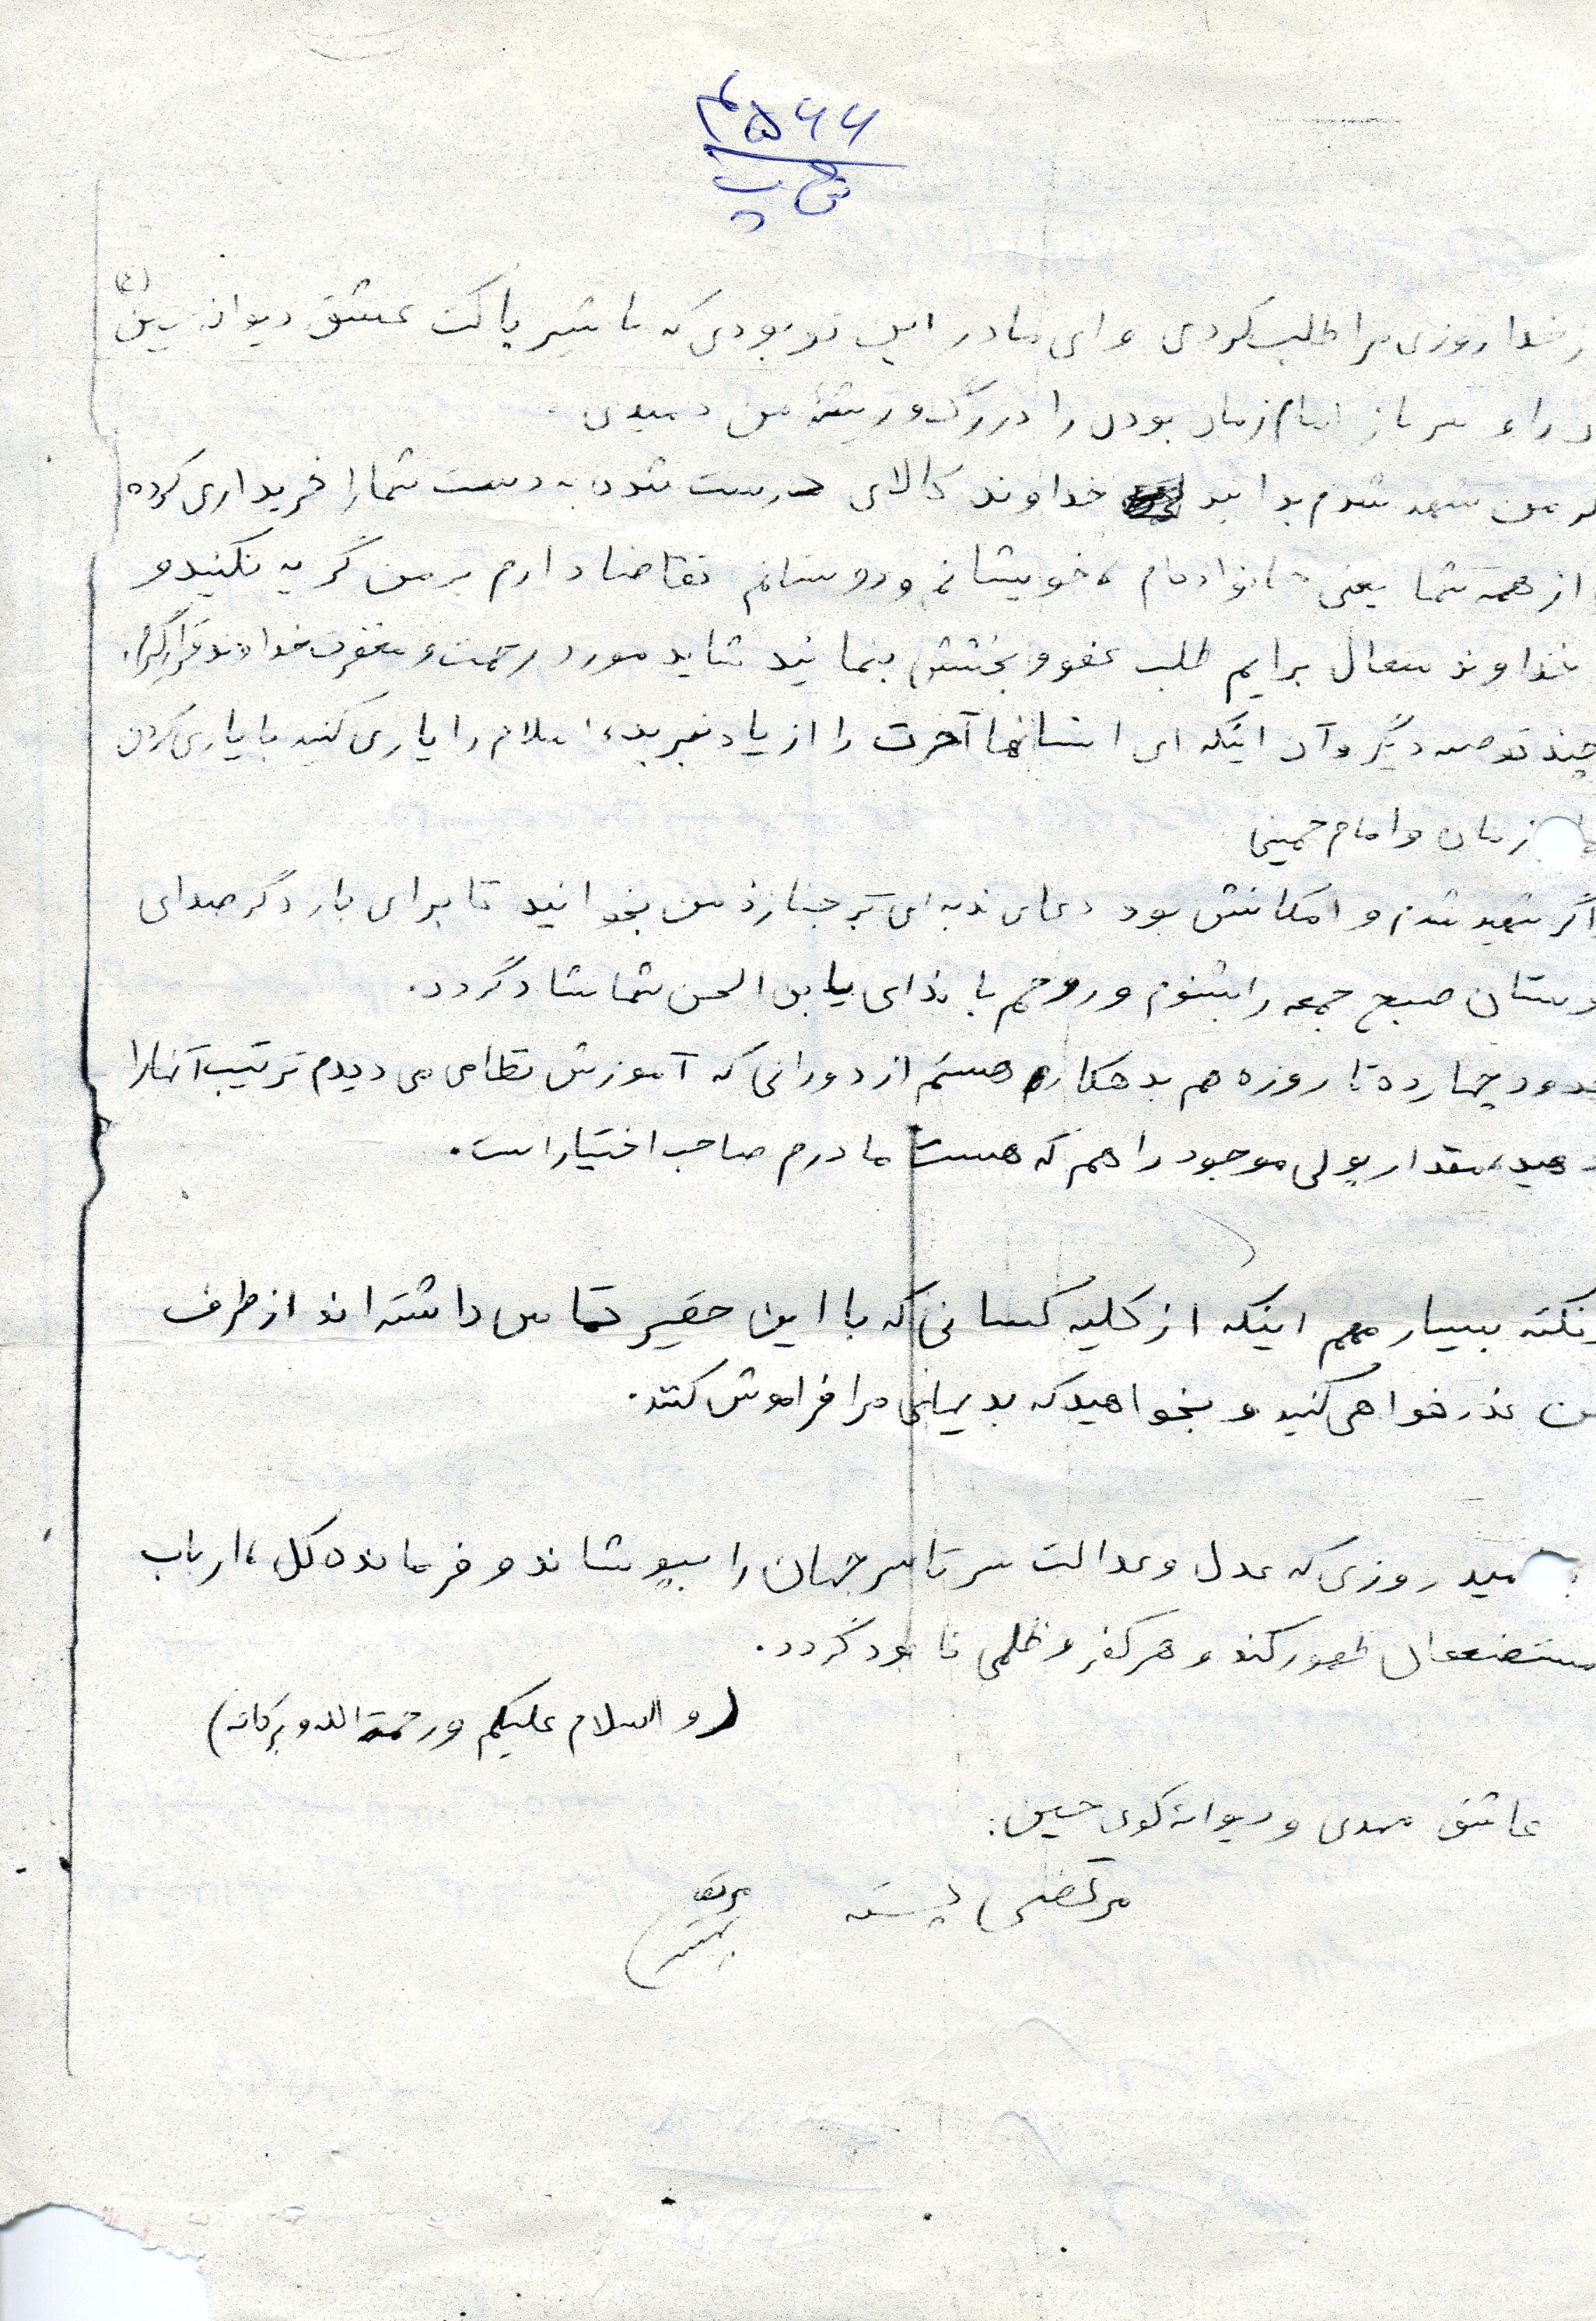 ۵۶۶م
ش پ
خدا روزی مرا طلب کردی و ای مادر این تو بودی که با شیر پاکت عشق دیوانه
راه سرباز امام زمان بودن را در رگ و ریشه من دمیدی.
من شهید شدم بدانید خداوند کالای درست شده به دست شما را خریداری کرده
از همه شما یعنی خانواده‌ام، خویشانم و دوستانم تقاضا دارم بر من گریه نکنید و
خداوند متعال برایم طلب عفو و بخشش بنمائید شاید مورد رحمت و مغفرت خداوند قرار گیرم.
چند توصیه دیگر و آن اینکه ای انسانها آخرت را از یاد نبرید، اسلام را یاری کنید با یاری کردن
زمان و امام خمینی
اگر شهید شدم و امکانش بود دعای ندبه‌ای بر جنازه من بخوانید تا برای بار دگر صدای
دوستان صبح جمعه را بشنوم و روحم با ندای یابن الحسن شما شاد گردد.
حدود چهارده تا روزه هم بدهکار هستم از دورانی که آموزش نظامی می دیدم ترتیب آنها را
دهید، مقدار پولی موجود را هم که هست مادرم صاحب اختیار است.
نکته بسیار مهم اینکه از کلیه کسانی که با این حقیر تماس داشته اند از طرف
من عذرخواهی کنید و بخواهید که بدیهای مرا فراموش کنند.
مید روزی که عدل و عدالت سرتاسر جهان را بپوشاند و فرمانده کل، ارباب
مستضعفان ظهور کند و هر کفر و ظلمی نابود گردد.
(والسلام علیکم ورحمة الله وبرکاته)
عاشق مهدی و دیوانه کوی حسین:
مرتضی پسته